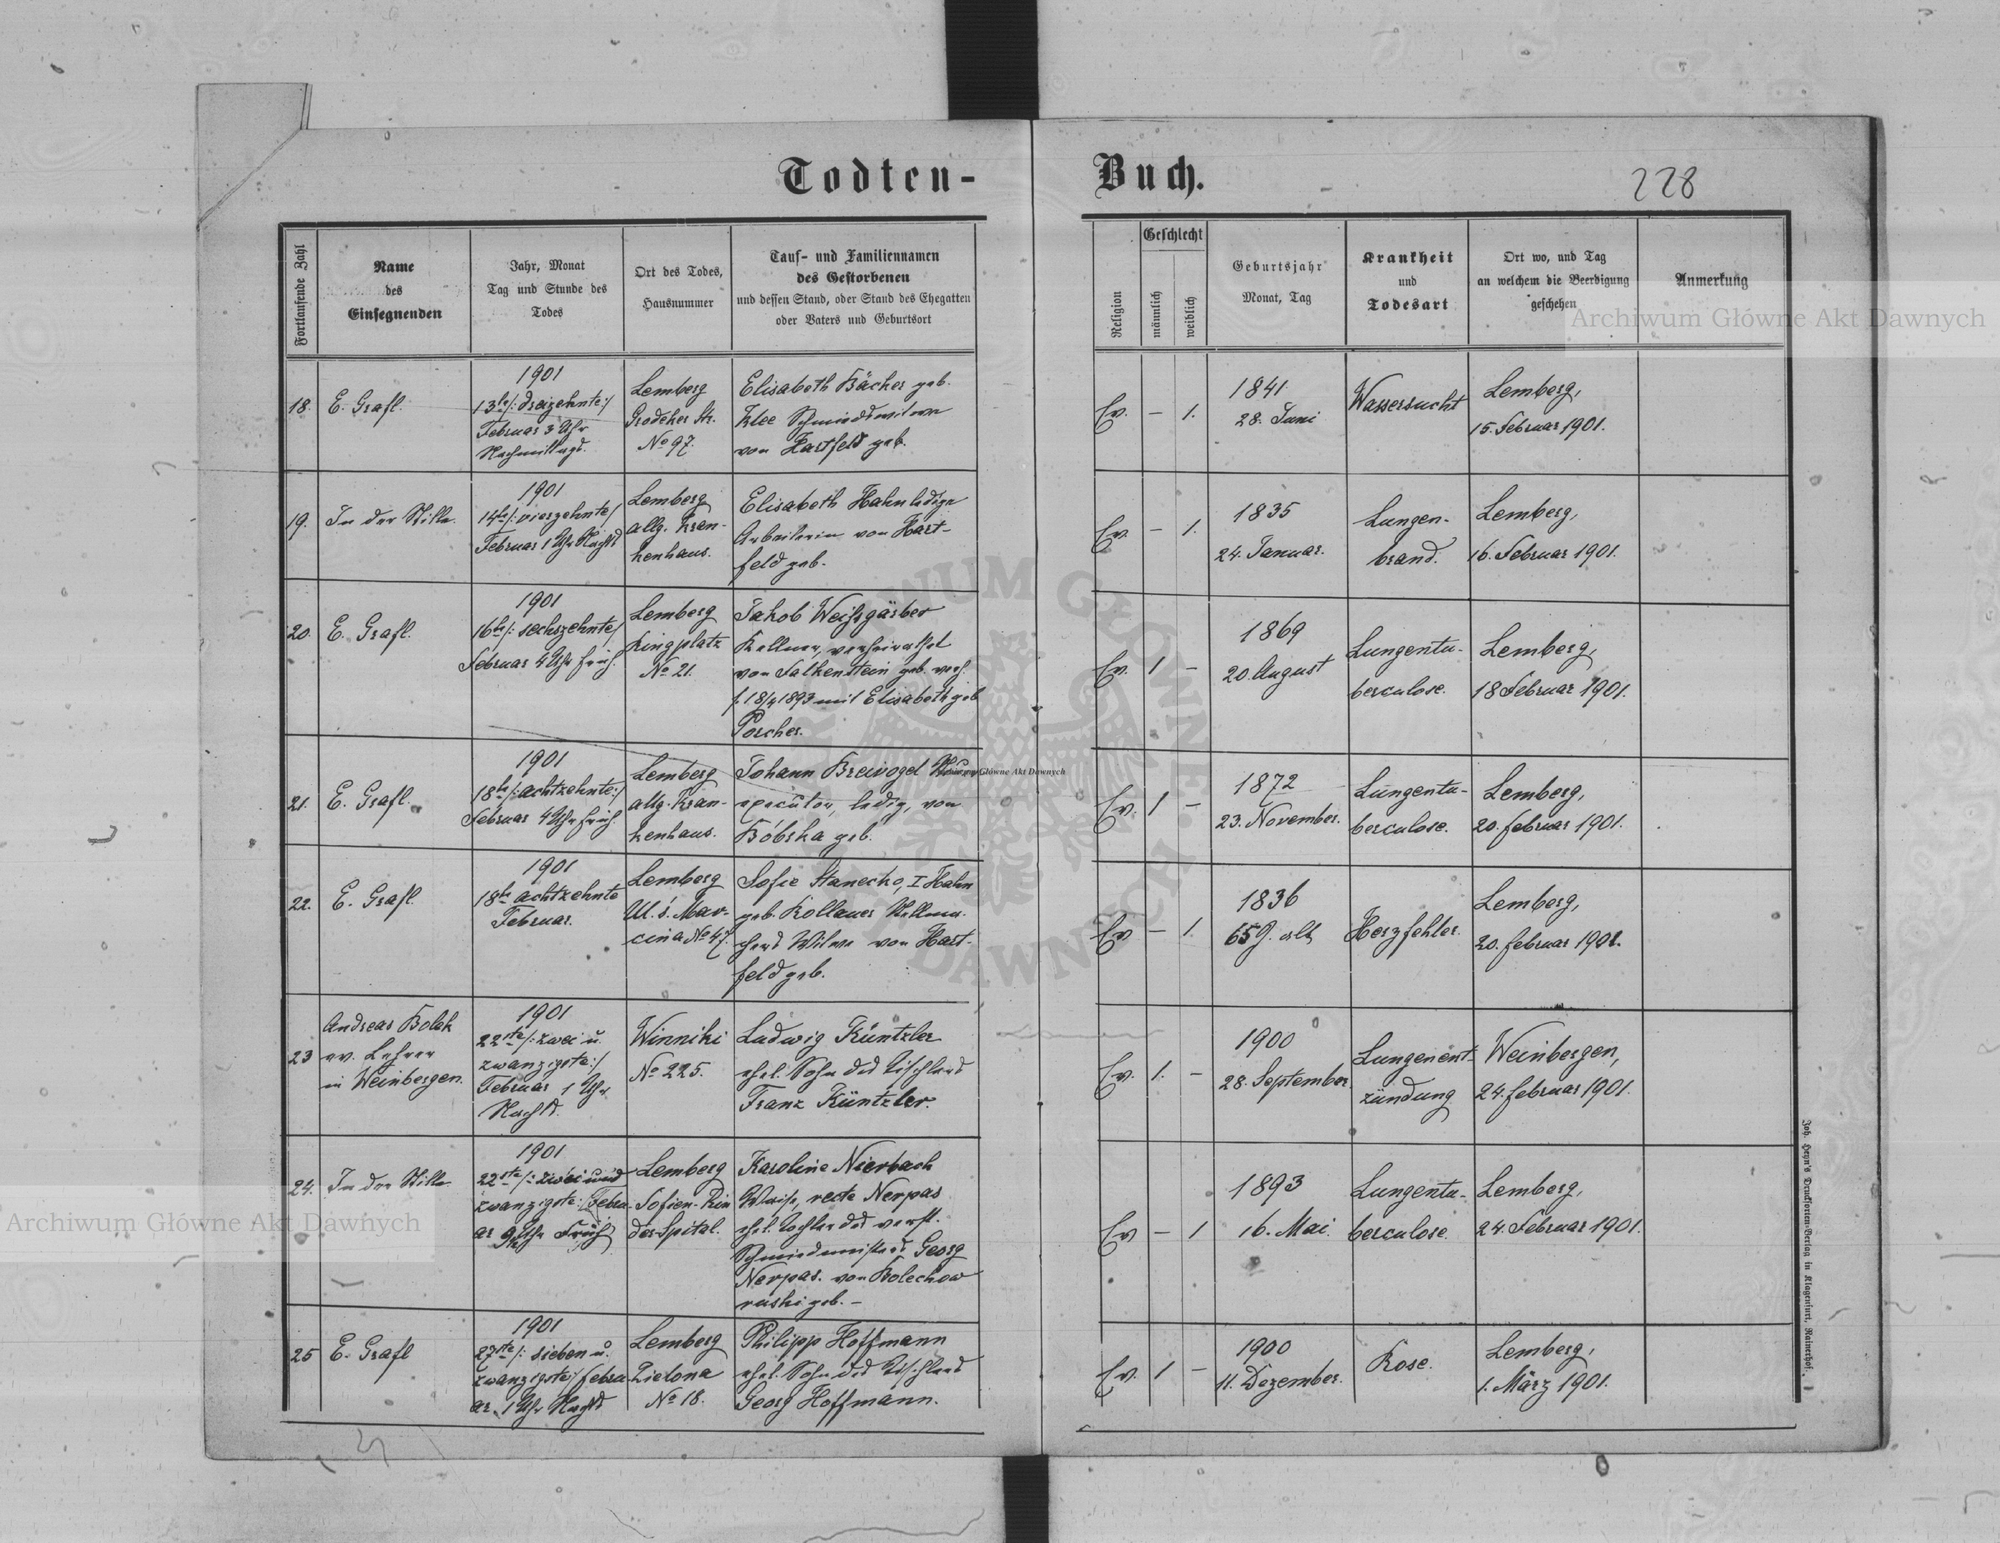 Todten-Buch.
228
Fortlaufende Zahl
Name
des
Einsegnenden
Jahr, Monat
Tag und Stunde des
Todes
Ort des Todes,
Hausnummer
Tauf- und Familiennamen
des Gestorbenen
und dessen Stand, oder Stand des Ehegatten
oder Vaters und Geburtsort
Religion
Geschlecht
männlich
weiblich
Geburtsjahr
Monat, Tag
Krankheit
und
Todesart
Ort wo, und Tag
an welchem die Beerdigung
geschehen
Anmerkung
18.
E. Grafl.
1901
13te/: dreizehnte:/
Februar 3 Uhr
Nachmittags.
Lemberg
Grodeker Str.
No 97.
Elisabeth Bächer geb.
Klee Schmiedswitwe
von Hartfeld geb.
Ev.
–
1.
1841
28. Juni
Wassersucht
Lemberg,
15. Februar 1901.
19.
In der Stille.
1901
14te/: vierzehnte/
Februar 1 Uhr Nachts
Lemberg
allg. Kran-
kenhaus.
Elisabeth Hahn ledige
Arbeiterin von Hart-
feld geb.
Ev.
–
1.
1835
24. Januar.
Lungen-
brand.
Lemberg,
16. Februar 1901.
20.
E. Grafl.
1901
16te/: sechszehnte/
Februar 4 Uhr früh.
Lemberg
Ringplatz
No 21.
Jakob Weißgärber
Kellner, verheirathet
von Falkenstein geb. verh.
/: 18/4 1893 mit Elisabeth geb
Porcher.
Ev.
1
–
1869
20. August
Lungentu-
berculose.
Lemberg,
18 Februar 1901.
21.
E. Grafl.
1901
18te/: achtzehnte:/
Februar 4 Uhr früh.
Lemberg
allg. Kran-
kenhaus.
Johann Breivogel
ledig, von
Bóbrka geb.
Ev.
1
–
1872
23. November.
Lungentu-
berculose.
Lemberg,
20. februar 1901.
22.
E. Grafl.
1901
18te achtzehnte
Februar.
Lemberg
Ul. ś. Mar-
cina No 47.
Sofie Stanecko, I Hahn
geb. Kollauer Stellma-
chers Witwe von Hart-
feld geb.
Ev
–
1.
1836
65 J. alt
Herzfehler.
Lemberg,
20. februar 1901.
23
Andreas Bolek
ev. Lehrer
in Weinbergen.
1901
22ste/: zwei u.
zwanzigste:/
Februar 1 Uhr
Nachts.
Winniki
No 225.
Ludwig Küntzler
ehel. Sohn des Tischlers
Franz Küntzler.
Ev.
1.
–
1900
28. September
Lungenent-
zündung
Weinbergen,
24. februar 1901.
24.
In der Stille.
1901
22ste/: zwei und
zwanzigste: Febru-
ar Uhr Früh
Lemberg
Sofien-Kin
der-Spital.
Karoline Nierbach
Waise, recte Nerpas
ehel. Tochter des verst.
Schmiedemeisters Georg
Nerpas. von Bolechow
ruski geb. –
Ev
–
1
1893
16. Mai.
Lungentu-
berculose.
Lemberg,
24. Februar 1901.
25
E. Grafl
1901
27ste/: sieben u.
zwanzigste/ febru-
ar. 1 Uhr Nachts
Lemberg
Zielona
No 18.
Philipp Hoffmann
ehel. Sohn des Tischlers
Georg Hoffmann.
Ev.
1
–
1900
11. Dezember.
Rose.
Lemberg,
1. März 1901.
Joh. Heyn's Drucksorten-Verlag in Klagenfurt, Rainerhof.
Archiwum Główne Akt Dawnych
Archiwum Główne Akt Dawnych
Archiwum Główne Akt Dawnych